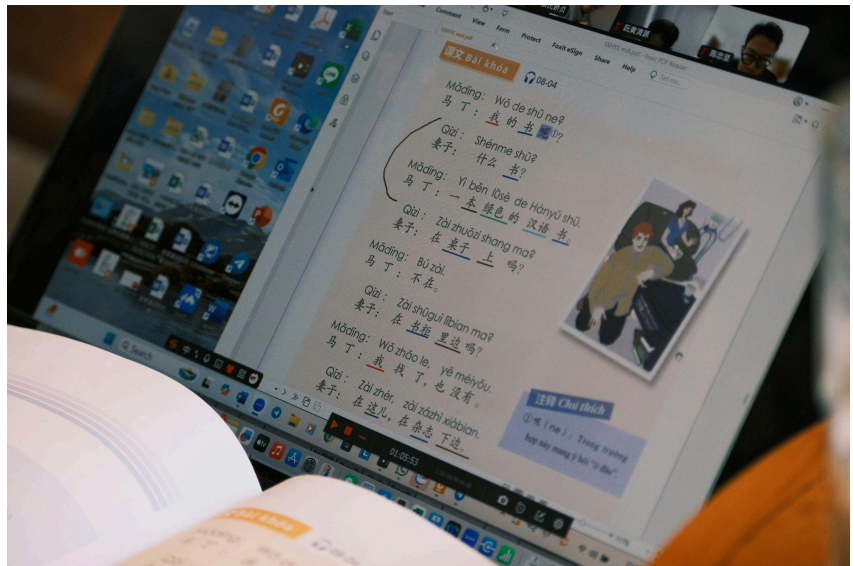 Comment View Form Protect Foxit eSign Share Help
课文 Bài khóa
08-04
Mǎdīng: Wǒ de shū ne?
马丁：我的书呢①?
Qīzi: Shénme shū?
妻子：什么书?
Mǎdīng: Yì běn lǜsè de Hànyǔ shū.
马丁：一本绿色的汉语书。
Qīzi: Zài zhuōzi shang ma?
妻子：在桌子上吗?
Mǎdīng: Bú zài.
马丁：不在。
Qīzi: Zài shūguì lǐbian ma?
妻子：在书柜里边吗?
Mǎdīng: Wǒ zhǎo le, yě méiyǒu.
马丁：我找了，也没有。
Qīzi: Zài zhèr, zài zázhì xiàbian.
妻子：在这儿，在杂志下边。
注释 Chú thích
①呢 (ne): Trong trường
hợp này mang ý hỏi "ở đâu".
Search
01:05:53
Bài khóa
08-04